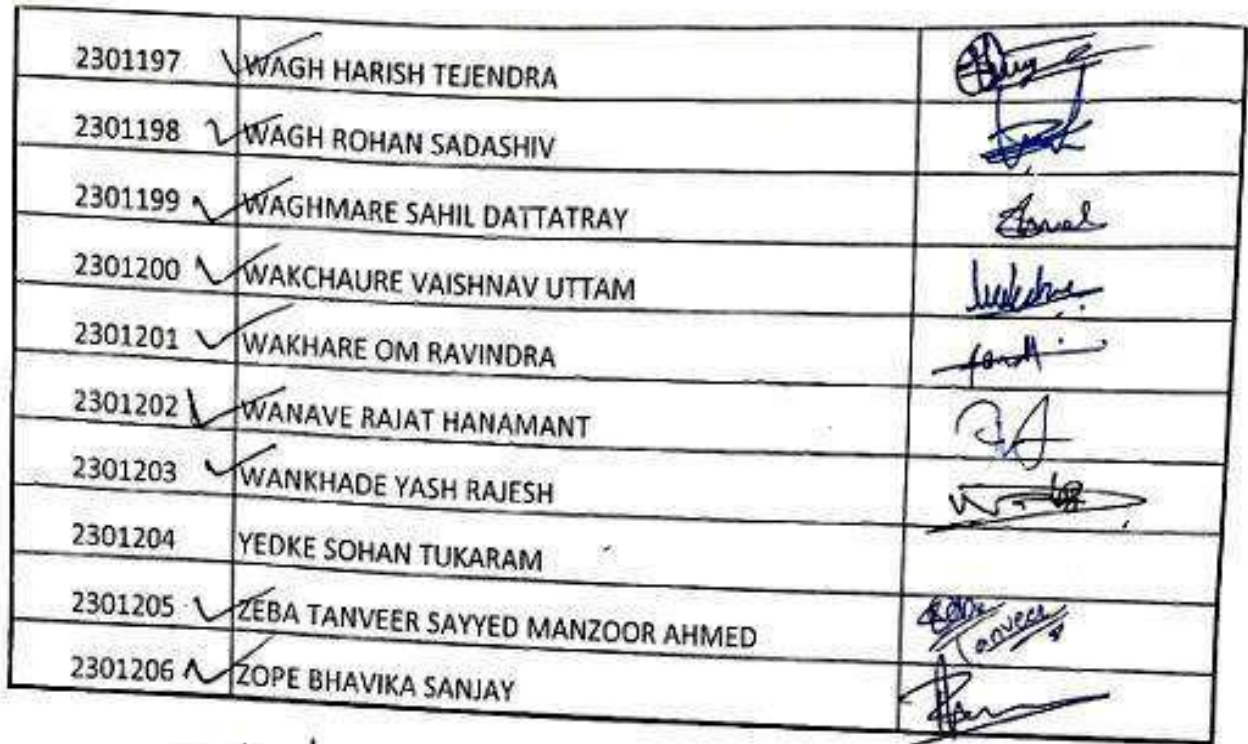 2301197 WAGH HARISH TEJENDRA
2301198 WAGH ROHAN SADASHIV
2301199 WAGHMARE SAHIL DATTATRAY
2301200 WAKCHAURE VAISHNAV UTTAM
2301201 WAKHARE OM RAVINDRA
2301202 WANAVE RAJAT HANAMANT
2301203 WANKHADE YASH RAJESH
2301204 YEDKE SOHAN TUKARAM
2301205 ZEBA TANVEER SAYYED MANZOOR AHMED
Tanveer
2301206 ZOPE BHAVIKA SANJAY